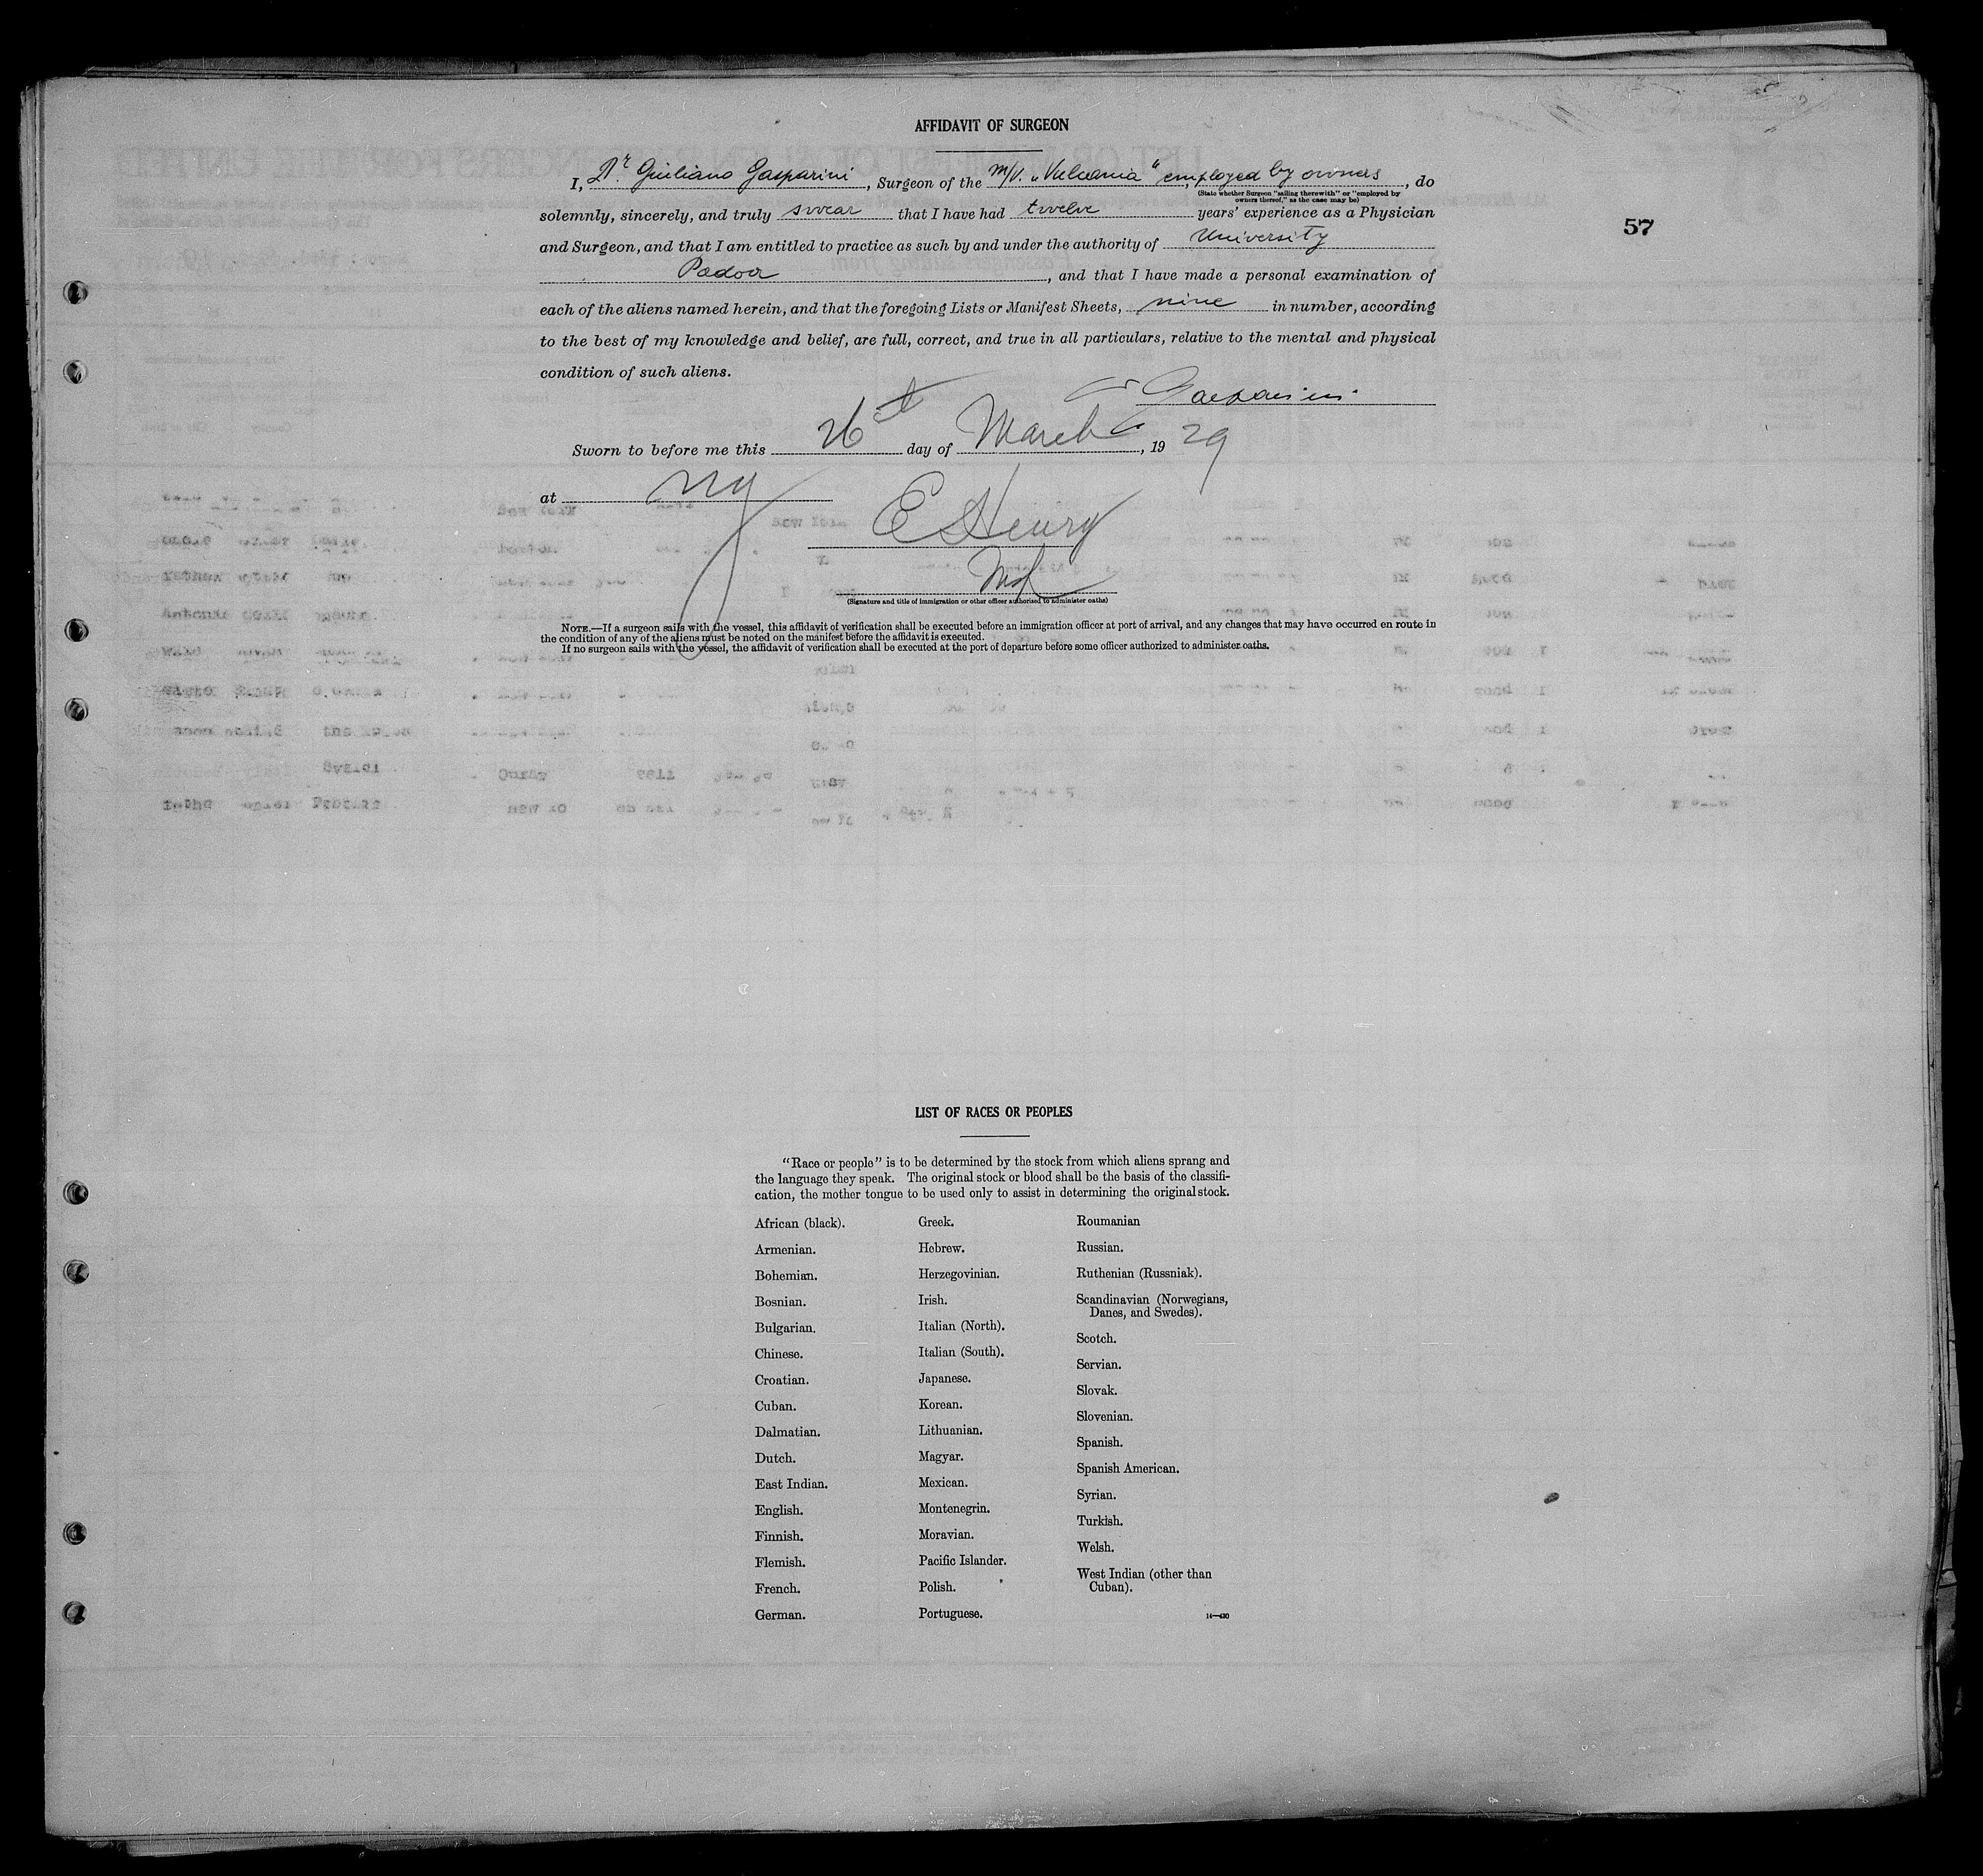 AFFIDAVIT OF SURGEON
I, Dr. Giuliano Gasparini, Surgeon of the M/V. „Vulcania“ employed by owners, do
(State whether Surgeon "sailing therewith" or "employed by
owners thereof," as the case may be)
solemnly, sincerely, and truly swear that I have had twelve years' experience as a Physician
57
and Surgeon, and that I am entitled to practice as such by and under the authority of University
Padova, and that I have made a personal examination of
each of the aliens named herein, and that the foregoing Lists or Manifest Sheets, nine in number, according
to the best of my knowledge and belief, are full, correct, and true in all particulars, relative to the mental and physical
condition of such aliens.
Gasparini
Sworn to before me this 26th day of March, 1929
at NY
E Henry
(Signature and title of immigration or other officer authorized to administer oaths)
NOTE.—If a surgeon sails with the vessel, this affidavit of verification shall be executed before an immigration officer at port of arrival, and any changes that may have occurred en route in
the condition of any of the aliens must be noted on the manifest before the affidavit is executed.
If no surgeon sails with the vessel, the affidavit of verification shall be executed at the port of departure before some officer authorized to administer oaths.
LIST OF RACES OR PEOPLES
"Race or people" is to be determined by the stock from which aliens sprang and
the language they speak. The original stock or blood shall be the basis of the classifi-
cation, the mother tongue to be used only to assist in determining the original stock.
African (black).
Armenian.
Bohemian.
Bosnian.
Bulgarian.
Chinese.
Croatian.
Cuban.
Dalmatian.
Dutch.
East Indian.
English.
Finnish.
Flemish.
French.
German.
Greek.
Hebrew.
Herzegovinian.
Irish.
Italian (North).
Italian (South).
Japanese.
Korean.
Lithuanian.
Magyar.
Mexican.
Montenegrin.
Moravian.
Pacific Islander.
Polish.
Portuguese.
Roumanian
Russian.
Ruthenian (Russniak).
Scandinavian (Norwegians,
Danes, and Swedes).
Scotch.
Servian.
Slovak.
Slovenian.
Spanish.
Spanish American.
Syrian.
Turkish.
Welsh.
West Indian (other than
Cuban).
14—430